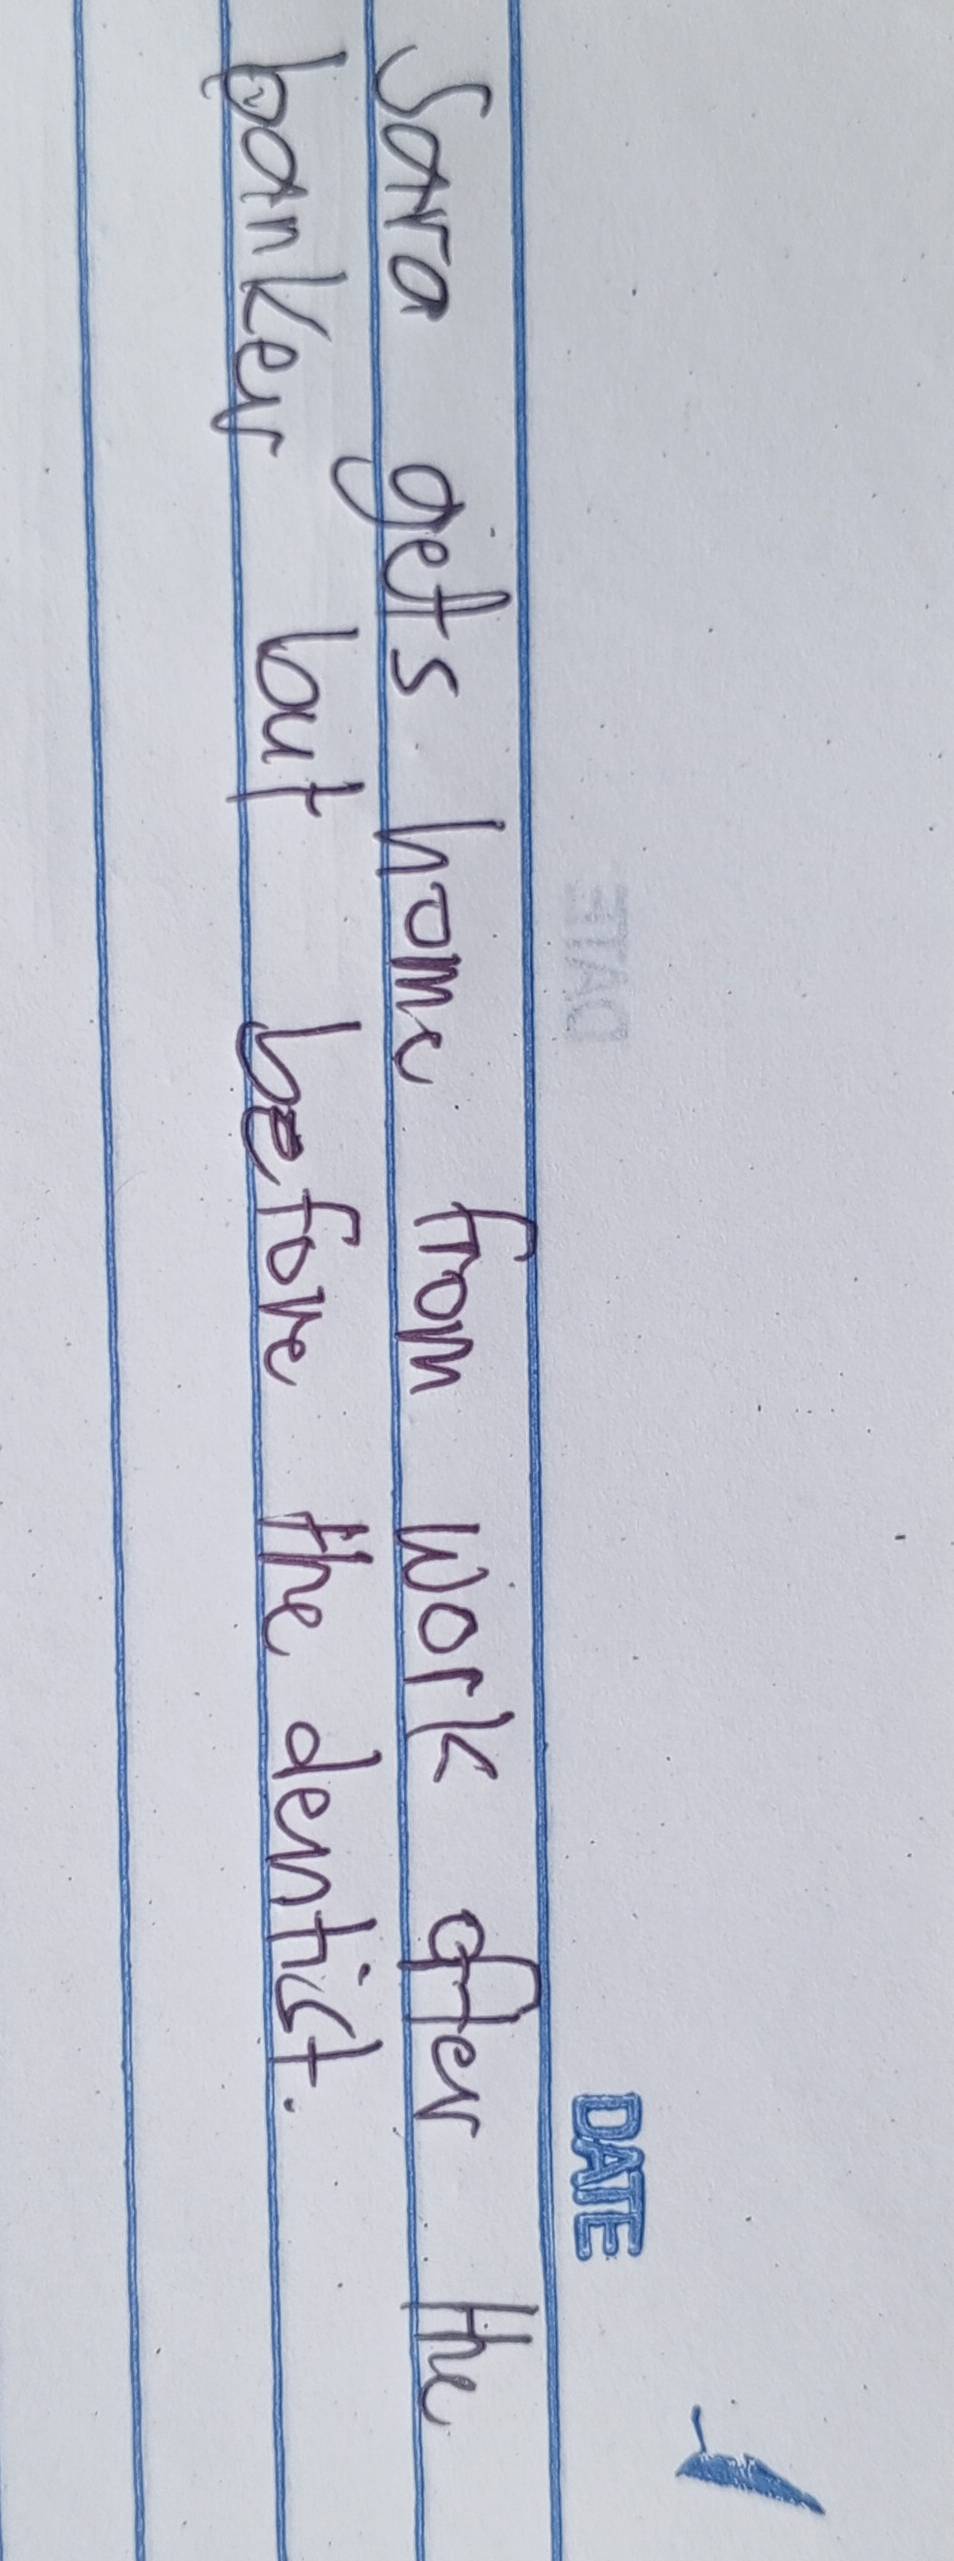 DATE
Sara gets home from work after the
banker but before the dentist.